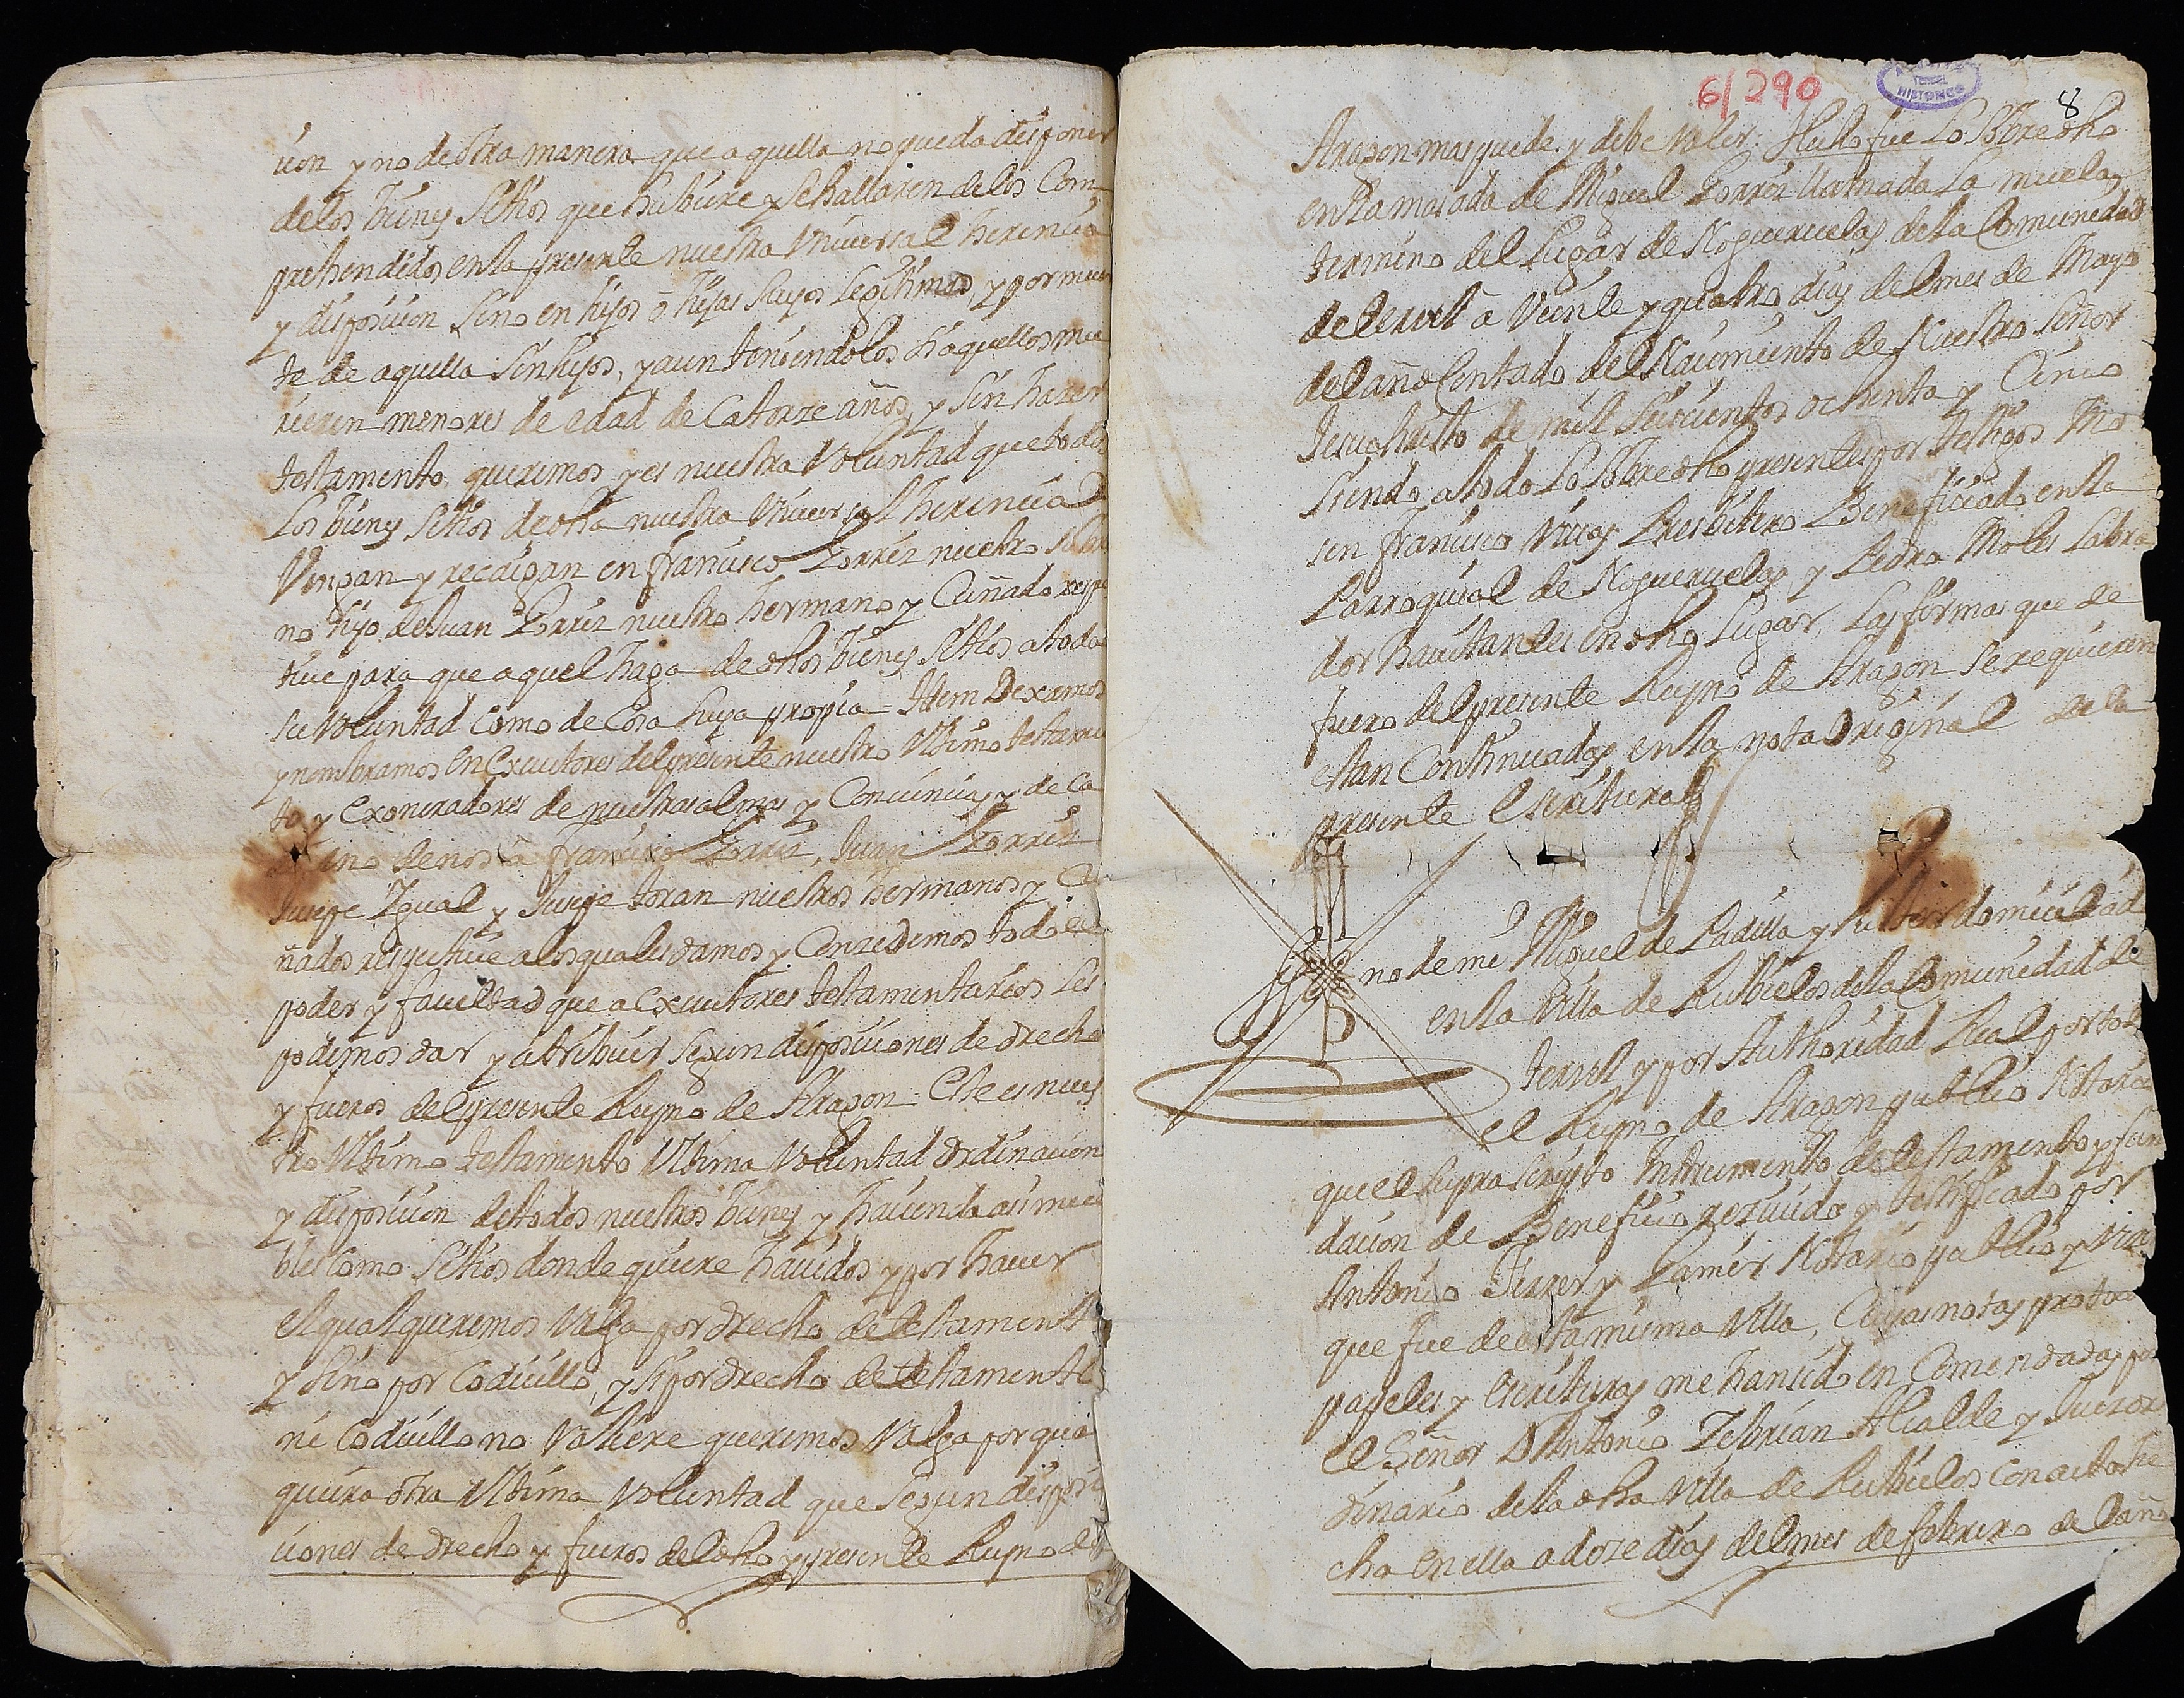 cion y no de otra manera que aquella no pueda disponer
de los bienes sitios que hubiere y se hallaren de los Com-
prehendidos en la presente nuestra Universal herencia
y disposicion sino en hijos o hijas suyos legitimos, y por muer
te de aquella sin hijos, y aun teniendolos si aquellos mu
rieren menores de edad de Catorze años, y sin hazer
testamento, queremos y es nuestra voluntad que todos
Los bienes sitios de dha nuestra Universal herencia
Vengan y recaigan en francisco Zorriz nuestro sobri
no hijo de Juan Zorriz nuestro hermano y Cuñado respe
tiue para que aquel haga de dhos bienes sitios a toda
su voluntad como de Cosa suya propia = Item Dexamos
y nombramos en Executores del presente nuestro Ultimo testamen
to, y Exoneradores de nuestras almas y Conciencias y de Ca
uno de nos a francisco Zorriz, Juan Zorriz
Jusepe Igual y Jusepe toran nuestros hermanos y Cu
ñados respectiue a los quales damos y Conzedemos todo el
poder y facultad que a Executores testamentarios les
podemos dar y atribuir segun disposiciones de drecho
y fueros del presente Reyno de Aragon. Este es nues
tro Ultimo testamento Ultima voluntad ordinacion
y disposicion de todos nuestros bienes y hauienda asi mue
bles como sitios donde quiere hauidos y por hauer
el qual queremos valga por drecho de testamento
y sino por Codicillo, y si por drecho de testamento
ni Codicillo no valiere queremos valga por qual
quiera otra Ultima voluntad que segun disposi
ciones de drecho y fueros del dho y presente Reyno de
6/290
TERUEL
HISTORICO
8
Aragon mas puede y debe valer. Hecho fue Lo sobre dho
en la masada de Miguel Zorriz llamada la muela,
termino del Lugar de Nogueruelas de la Comunidad
de teruel a Veinte y quatro dias del mes de Mayo
del año Contado del Nacimiento de Nuestro Señor
Jesuchristo de mil seiscientos ochenta y Cinco
siendo a todo Lo sobre dho presentes por testigos Mo
sen francisco Vicas Presbitero Beneficiado en la
Parroquial de Nogueruelas y Pedro Moles Labra
dor hauitantes en dho Lugar, Las firmas que de
fuero del presente Reyno de Aragon se requieren
estan Continuadas en la nota original de la
presente Escritura
no de mi Miguel de Padilla y domicilad
en la Villa de Rubielos de la Comunidad de
teruel y por Authoridad Real por todo
el Reyno de Aragon publico Notario
que el supra scripto Instrumento de testamento y fun
dacion de Beneficio rezuuido y testificado por
Antonio Ferrer y Lamir Notario publico y Vzn
que fue de esta misma Villa, Cuyas notas protoco
papeles y escrituras me han sido en Comendadas por
el Señor D. Antonio Zebrian Alcalde y Juez or
dinario de la dha Villa de Rubielos con acto he
cho en ella a doze dias del mes de febrero del año